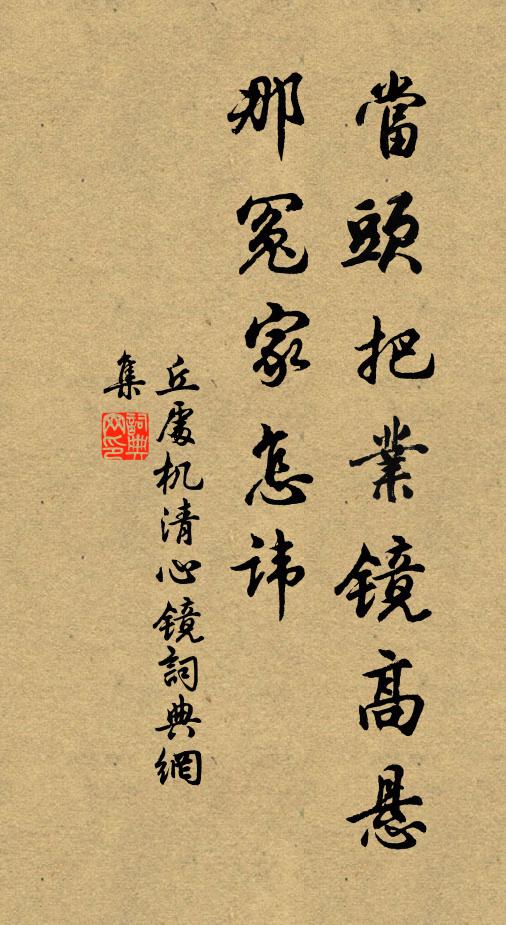 當頭把業镜高悬
那冤家怎讳
丘處机清心镜詞典網
集
詞典
网印